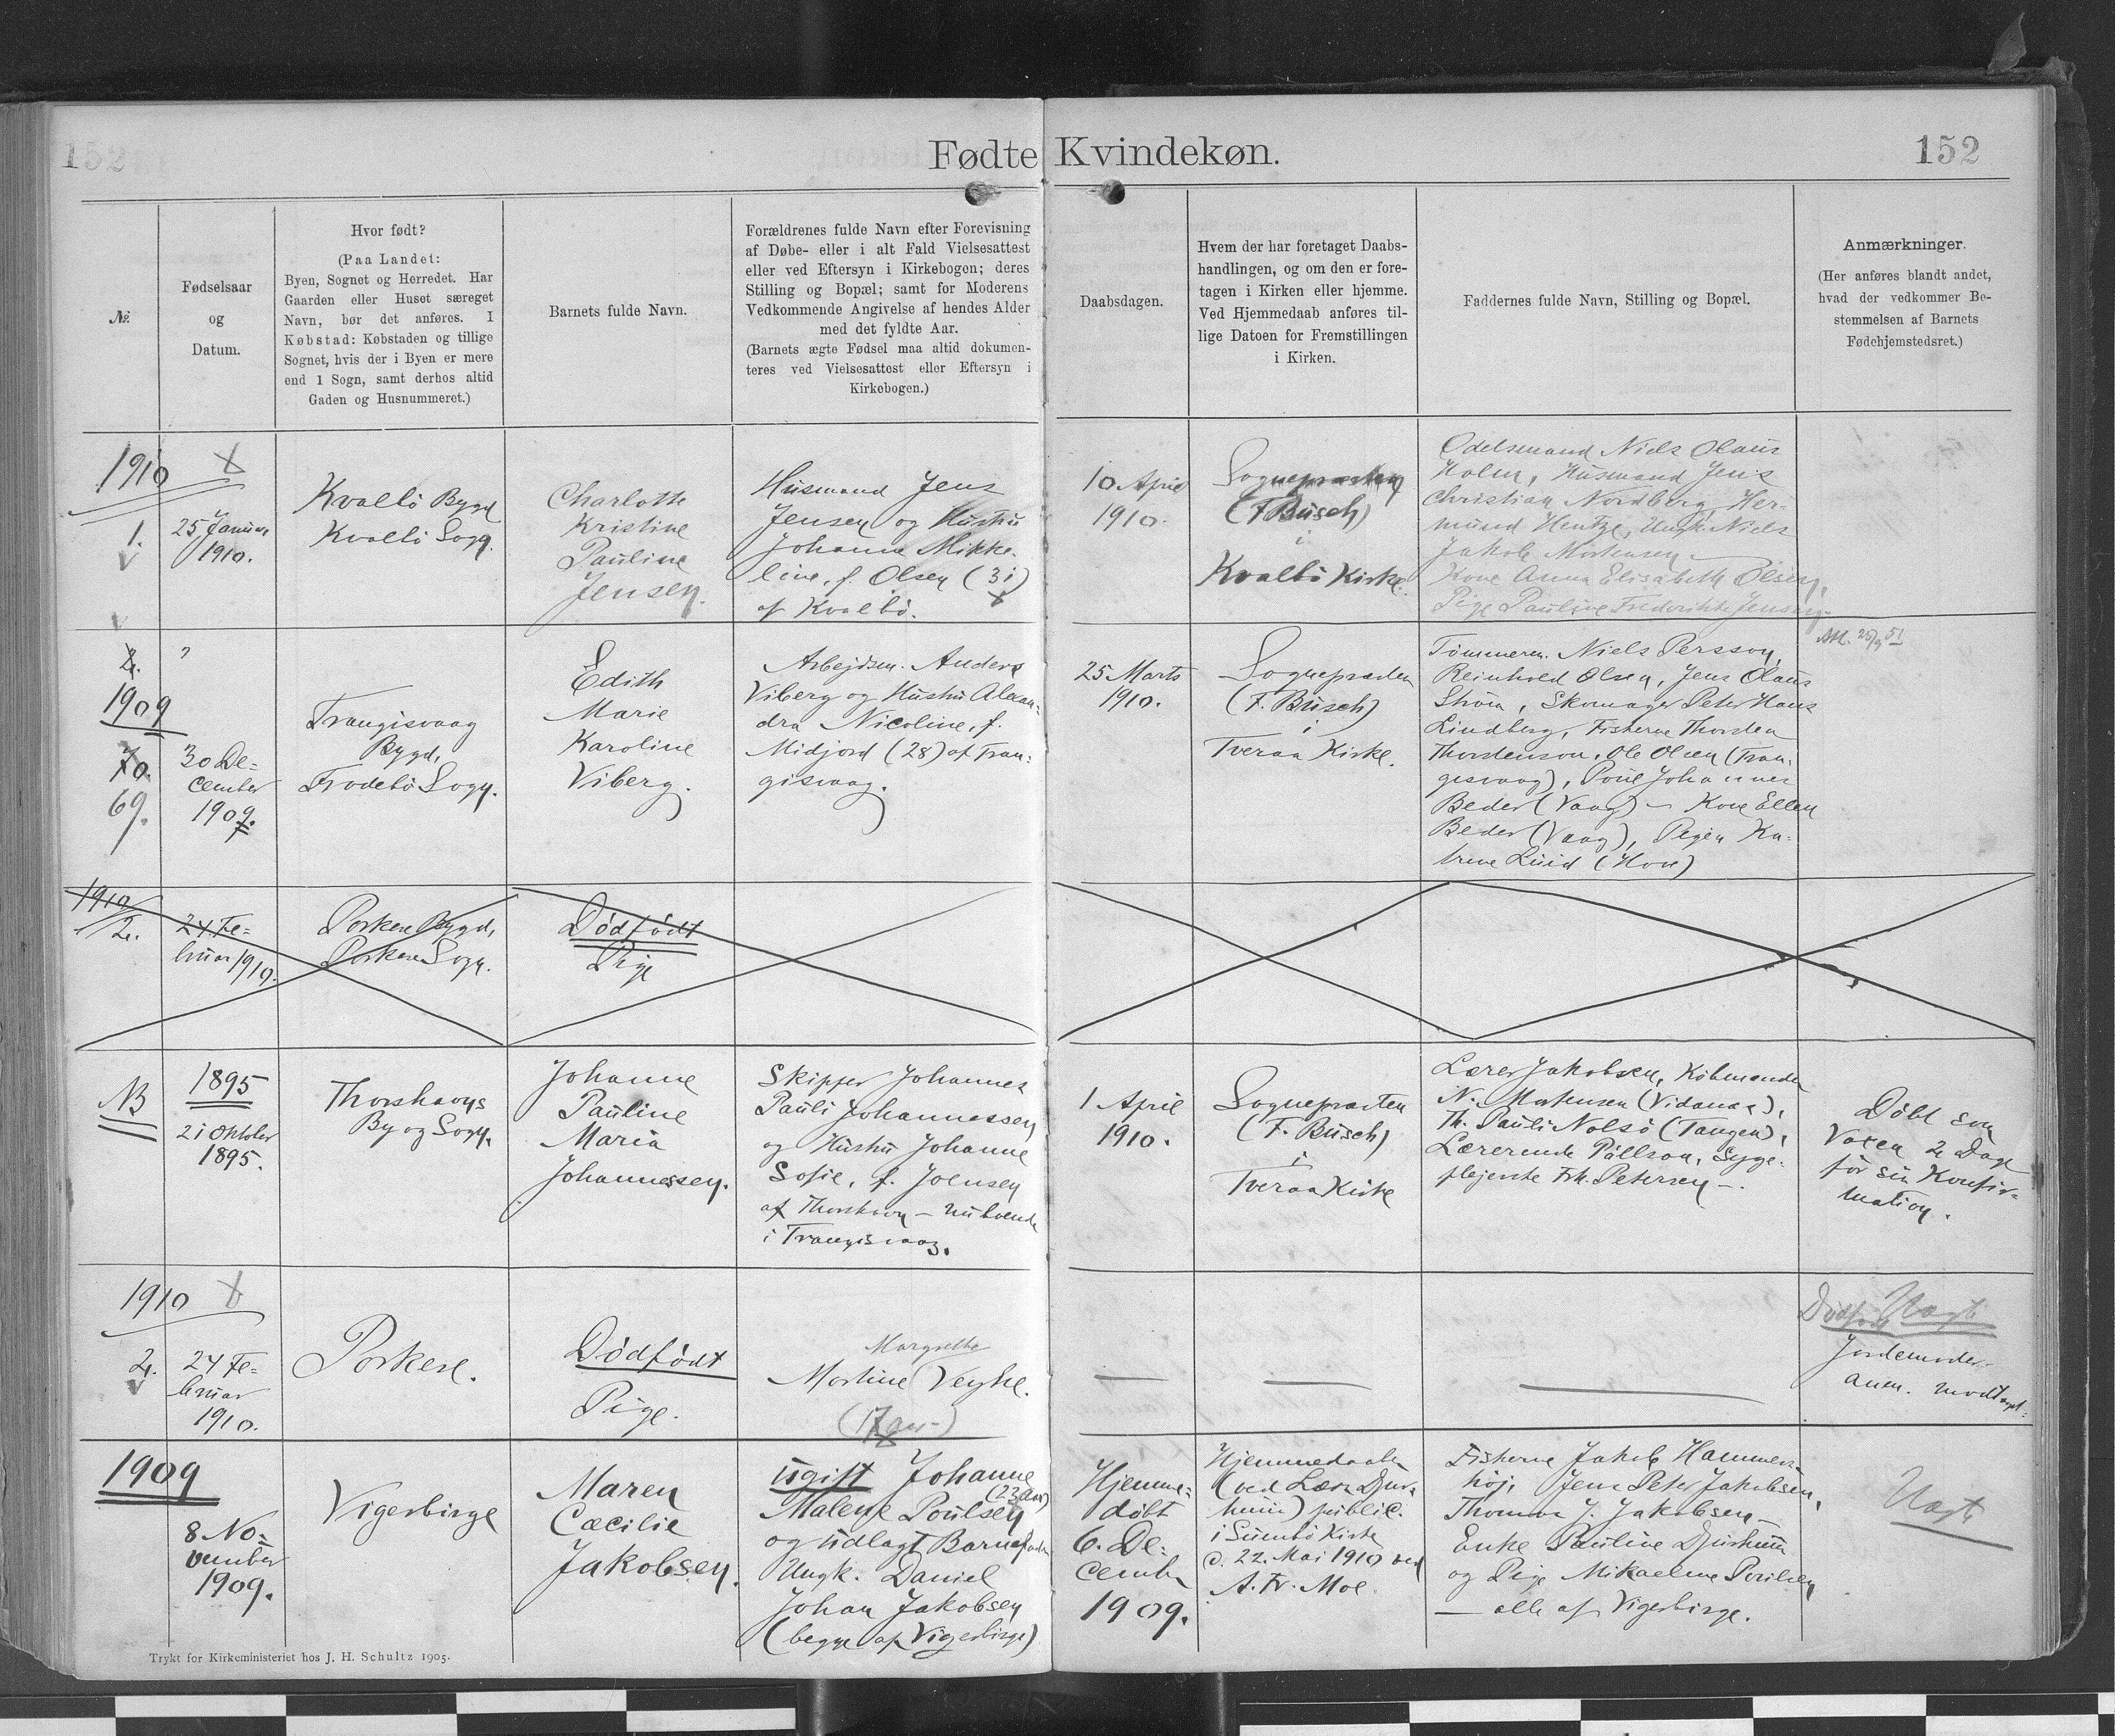 152
Fødte Kvindekøn.
152
№.
Fødselsaar
og
Datum.
Hvor født?
(Paa Landet:
Byen, Sognet og Herredet. Har
Gaarden eller Huset særeget
Navn, bør det anføres. I
Købstad: Købstaden og tillige
Sognet, hvis der i Byen er mere
end 1 Sogn, samt derhos altid
Gaden og Husnummeret.)
Barnets fulde Navn.
Forældrenes fulde Navn efter Forevisning
af Døbe- eller i alt Fald Vielsesattest
eller ved Eftersyn i Kirkebogen; deres
Stilling og Bopæl; samt for Moderens
Vedkommende Angivelse af hendes Alder
med det fyldte Aar.
(Barnets ægte Fødsel maa altid dokumen-
teres ved Vielsesattest eller Eftersyn i
Kirkebogen.)
Daabsdagen.
Hvem der har foretaget Daabs-
handlingen, og om den er fore-
tagen i Kirken eller hjemme.
Ved Hjemmedaab anføres til-
lige Datoen for Fremstillingen
i Kirken.
Faddernes fulde Navn, Stilling og Bopæl.
Anmærkninger.
(Her anføres blandt andet,
hvad der vedkommer Be-
stemmelsen af Barnets
Fødehjemstedsret.)
1910
1.
25 Januar
1910.
Kvalbö Bygd
Kvalbö Sogn.
Charlotte
Kristine
Pauline
Jensen.
Husmand Jens
Jensen og Hustru
Johanne Mikke-
line, f. Olsen (31)
af Kvalbö.
10 April
1910.
Sognepræsten
(F. Busch)
i
Kvalbö Kirke.
Odelsmand Niels Olaus
Holm, Husmand Jens
Christian Nordberg, Her-
mund Hentze, Ungk. Niels
Jakob Mortensen -
Kone Anna Elisabeth Olsen,
Pige Pauline Frederikke Jensen -
2.
?
1909
70.
69.
30 De-
cember
1909.
Trangisvaag
Bygd,
Frodebö Sogn.
Edith
Marie
Karoline
Viberg.
Arbejdsm. Anders
Viberg og Hustru Alexan-
dra Nicoline, f.
Midjord (28) af Tran-
gisvaag.
25 Marts
1910.
Sognepræsten
(F. Busch)
i
Tveraa Kirke.
Att. 25/9 51
Tömmerm. Niels Persson,
Reinhold Olsen, Jens Olaus
Ström, Skomager Peter Hans
Lindberg, Fiskerne Thorsten
Thorstensson, Ole Olsen (Tran-
gisvaag), Poul Johannes
Beder (Vaag) - Kone Ellen
Beder (Vaag), Pigen Ka-
trine Luid (Hove)
1910
2.
24 Fe-
bruar 1910.
Porkere Bygd,
Porkere Sogn.
Dødfödt
Pige
NB
1895
21 Oktober
1895.
Thorshavns
By og Sogn.
Johanne
Pauline
Maria
Johannessen.
Skipper Johannes
Pauli Johannessen
og Hustru Johanne
Sofie, f. Joensen
af Thorshavn - nu boende
i Trangisvaag.
1 April
1910.
Sognepræsten
(F. Busch)
i
Tveraa Kirke
Lærer Jakobsen, Köbmændene
N. Mortensen (Vidanæs),
Th. Pauli Nolsö (Tangen),
Lærerinde Pállson, Syge-
plejerske Frk. Petersen -.
Döbt som
Voxen 2 Dage
för sin Konfir-
mation.
1910
2.
24 Fe-
bruar
1910.
Porkere.
Dødfødt
Pige.
Margrethe
Mortine Veyhe.
(17 aar -)
Dødfødt Uægte
Jordemoder-
anm. modtaget.
1909
8 No-
vember
1909.
Vigerbirge
Maren
Cæcilie
Jakobsen.
ugift Johanne
(23 aar)
Malene Poulsen
og udlagt Barnefader
Ungk. Daniel
Johan Jakobsen
(begge af Vigerbirge)
Hjemme-
døbt
6. De-
cember
1909.
Hjemmedaab
(ved Lærer Djur-
huus) public.
i Sumbö Kirke
d. 22. Mai 1910 ved
A. Fr. Moe.
Fiskerne Jakob Hammers-
høj, Jens Peter Jakobsen,
Thomas J. Jakobsen -
Enke Pauline Djurhuus
og Pige Mikaeline Poulsen
- alle af Vigerbirge.
Uægte
Trykt for Kirkeministeriet hos J. H. Schultz 1905.